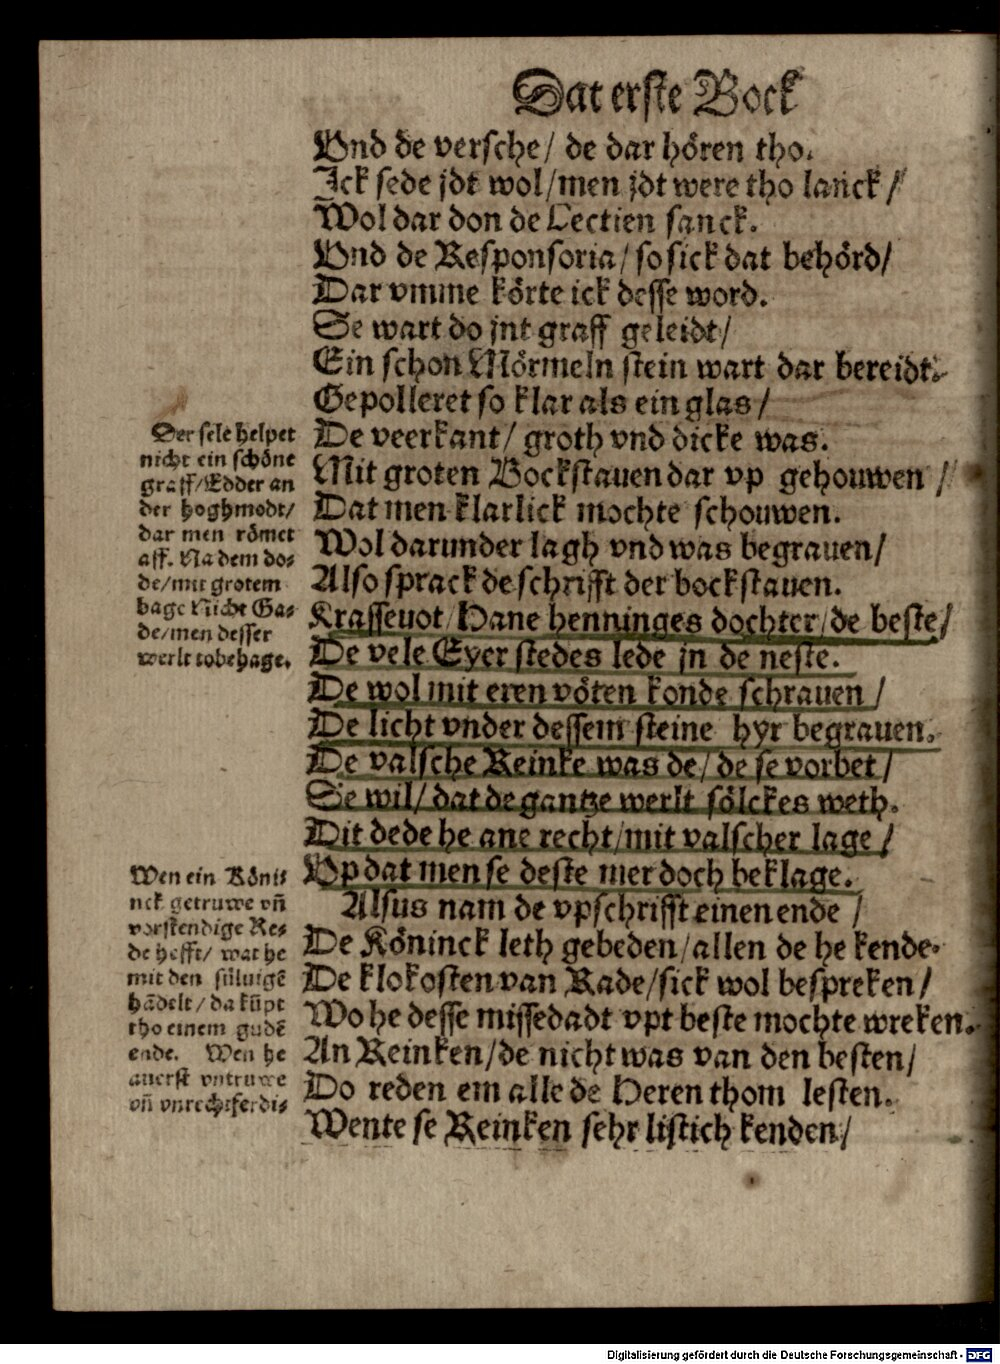 Dat erste Bock
Vnd de versche/ de dar hören tho.
Ick sede jdt wol/men jdt were tho lanck/
Wol dar don de Lectien sanck.
Vnd de Responsoria/ so sick dat behörd/
Dar vmme körte ick desse word.
Se wart do jnt graff geleidt/
Ein schon Mörmeln stein wart dar bereidt.
Gepolleret so klar als ein glas/
De veerkant/ groth vnd dicke was.
Mit groten Bockstauen dar vp gehouwen/
Dat men klarlick mochte schouwen.
Wol darunder lagh vnd was begrauen/
Also sprack de schrifft der bockstauen.
Krasseuot/Hane henninges dochter/de beste/
De vele Eyer stedes lede jn de neste.
De wol mit eren vöten konde schrauen/
De licht vnder dessem steine hyr begrauen.
De valsche Reinke was de/ de se vorbet/
Se wil/ dat de gantze werlt sölckes weth.
Dit dede he ane recht/mit valscher lage/
Vp dat men se deste mer doch beklage.
Alsus nam de vpschrifft einen ende/
De Köninck leth gebeden/allen de he kende.
De klokosten van Rade/sick wol bespreken/
Wo he desse missedadt vpt beste mochte wreken.
An Reinken/de nicht was van den besten/
Do reden em alle de Heren thom lesten.
Wente se Reinken sehr listich kenden/
Der sele helpet
nicht ein schöne
graff/Edder an
der hoghmodt/
dar men römet
aff. Na dem do-
de/mit grotem
bage Nicht Ga-
de/men desser
werlt tobehage.
Wen ein Köni-
nck getruwe vñ
vorstendige Re-
de hefft/ wat he
mit den süluigē
hādelt/da kūpt
tho einem gudē
ende. Wen he
auerst vntruwe
vñ vnrechtferdi-
Digitalisierung gefördert durch die Deutsche Forschungsgemeinschaft - DFG